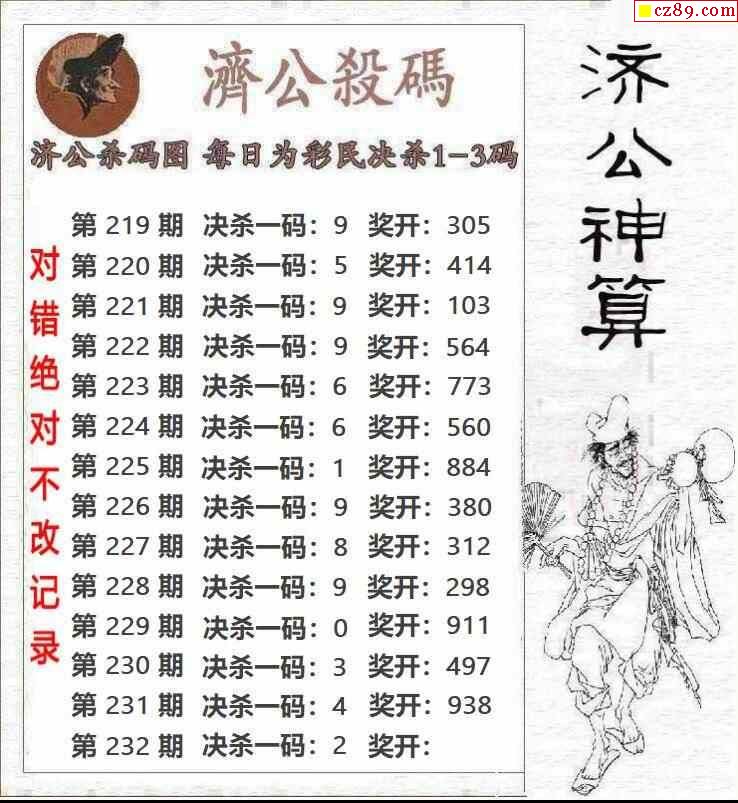 cz89.com
濟公殺碼
济公杀码图 每日为彩民决杀1-3码
第 219 期 决杀一码：9 奖开：305
第 220 期 决杀一码：5 奖开：414
第 221 期 决杀一码：9 奖开：103
第 222 期 决杀一码：9 奖开：564
第 223 期 决杀一码：6 奖开：773
第 224 期 决杀一码：6 奖开：560
第 225 期 决杀一码：1 奖开：884
第 226 期 决杀一码：9 奖开：380
第 227 期 决杀一码：8 奖开：312
第 228 期 决杀一码：9 奖开：298
第 229 期 决杀一码：0 奖开：911
第 230 期 决杀一码：3 奖开：497
第 231 期 决杀一码：4 奖开：938
第 232 期 决杀一码：2 奖开：
对错绝对不改记录
济公神算